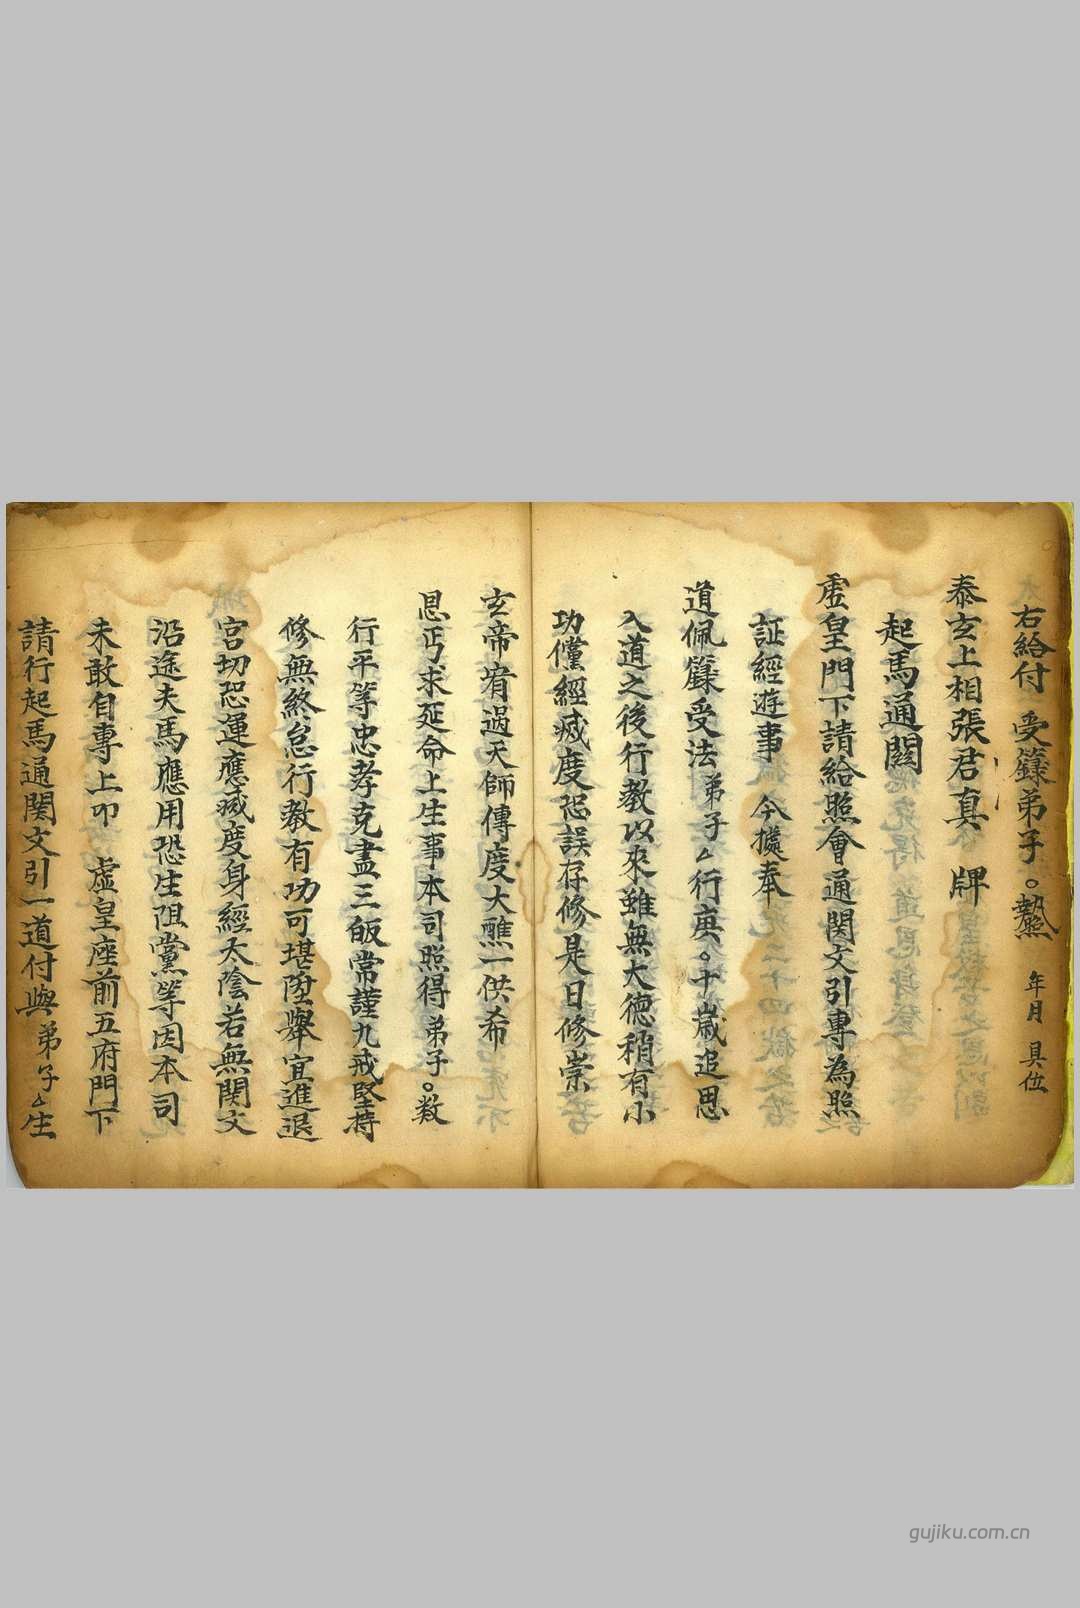 右給付　受籙弟子。熱　年月　具位
泰玄上相張君真　牌
起馬通関
虛皇門下請給照會通関文引專為照
証經遊事　今據奉
道佩籙受法弟子厶行庚。十嵗追思
入道之後行教以來雖無大德稍有小
功儻經滅度恐誤存修是日修崇
玄帝宥過天師傳度大醮一供希
恩丐求延命上生事本司照得弟子。数
行平等忠孝克盡三皈常謹九戒堅持
修無終怠行教有功可堪陞舉宜進退
宮切恐運應滅度身經太陰若無関文
沿途夫馬應用恐生阻黨等因本司
未敢自專上叩　虛皇座前五府門下
請行起馬通関文引一道付與弟子厶生
gujiku.com.cn